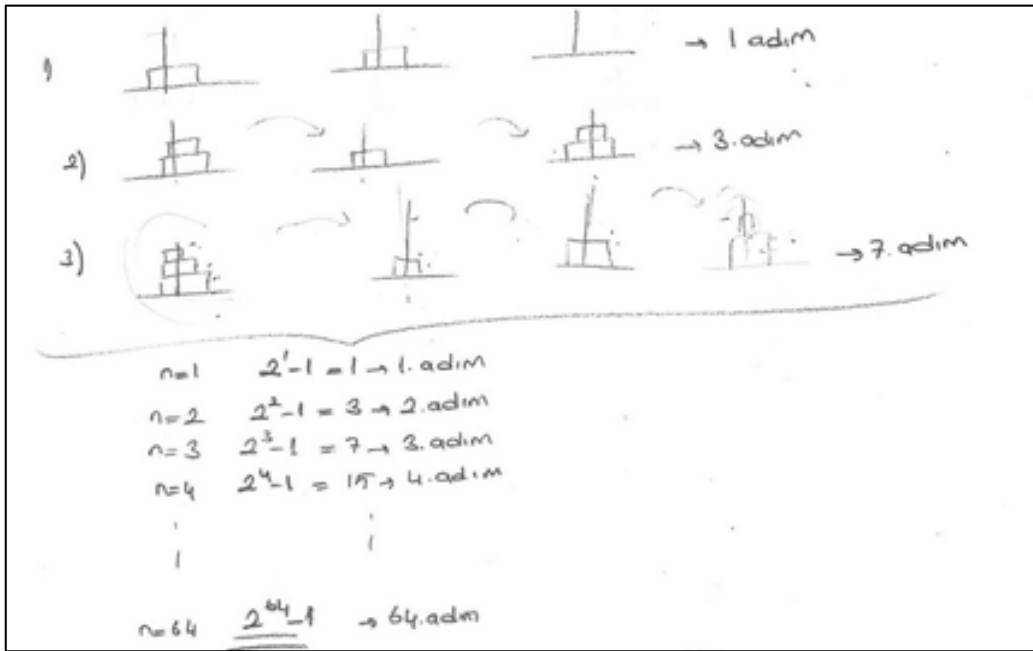 1) → 1 adım
2) → 3. adım
3) → 7. adım
n=1 2¹-1 = 1 → 1. adım
n=2 2²-1 = 3 → 2. adım
n=3 2³-1 = 7 → 3. adım
n=4 2⁴-1 = 15 → 4. adım
n=64 2⁶⁴-1 → 64. adım